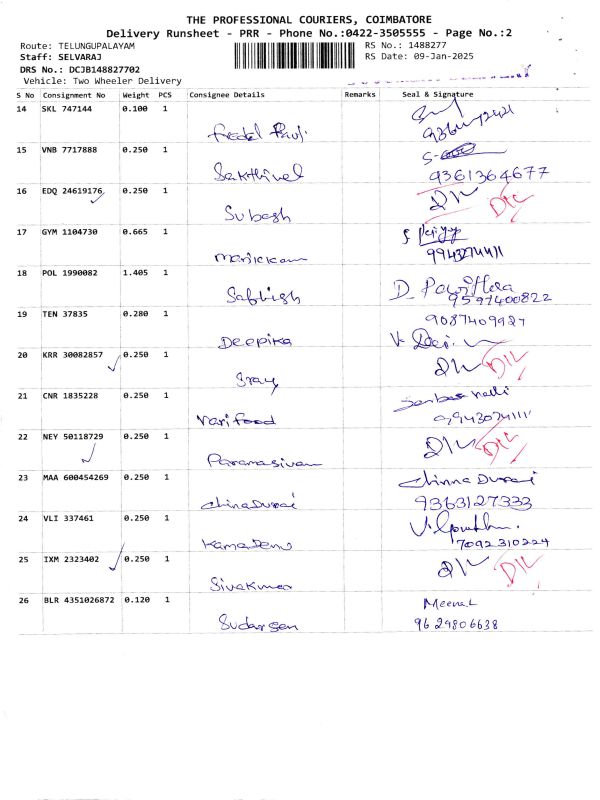 THE PROFESSIONAL COURIERS, COIMBATORE
Delivery Runsheet - PRR - Phone No.:0422-3505555 - Page No.:2
Route: TELUNGUPALAYAM
RS No.: 1488277
Staff: SELVARAJ
RS Date: 09-Jan-2025
DRS No.: DCJB148827702
Vehicle: Two Wheeler Delivery
S No Consignment No Weight PCS Consignee Details Remarks Seal & Signature
14 SKL 747144 0.100 1
15 VNB 7717888 0.250 1
Sakthivel 9361364677
16 EDQ 24619176 0.250 1 D/L D/L
Subash
17 GYM 1104730 0.665 1
Manickam 9943274411
18 POL 1990082 1.405 1
Sathish 9597400822
19 TEN 37835 0.280 1 9087409927
Deepika
20 KRR 30082857 0.250 1 D/L D/L
21 CNR 1835228 0.250 1
Nari food 9943074111
22 NEY 50118729 0.250 1 D/L D/L
Paramasivam
23 MAA 600454269 0.250 1 Chinna Durai
China Durai 9363127333
24 VLI 337461 0.250 1
Kamadenu 7092310224
25 IXM 2323402 0.250 1 D/L D/L
Sivakumar
26 BLR 4351026872 0.120 1 Meena.L
Sudarsan 9629806638